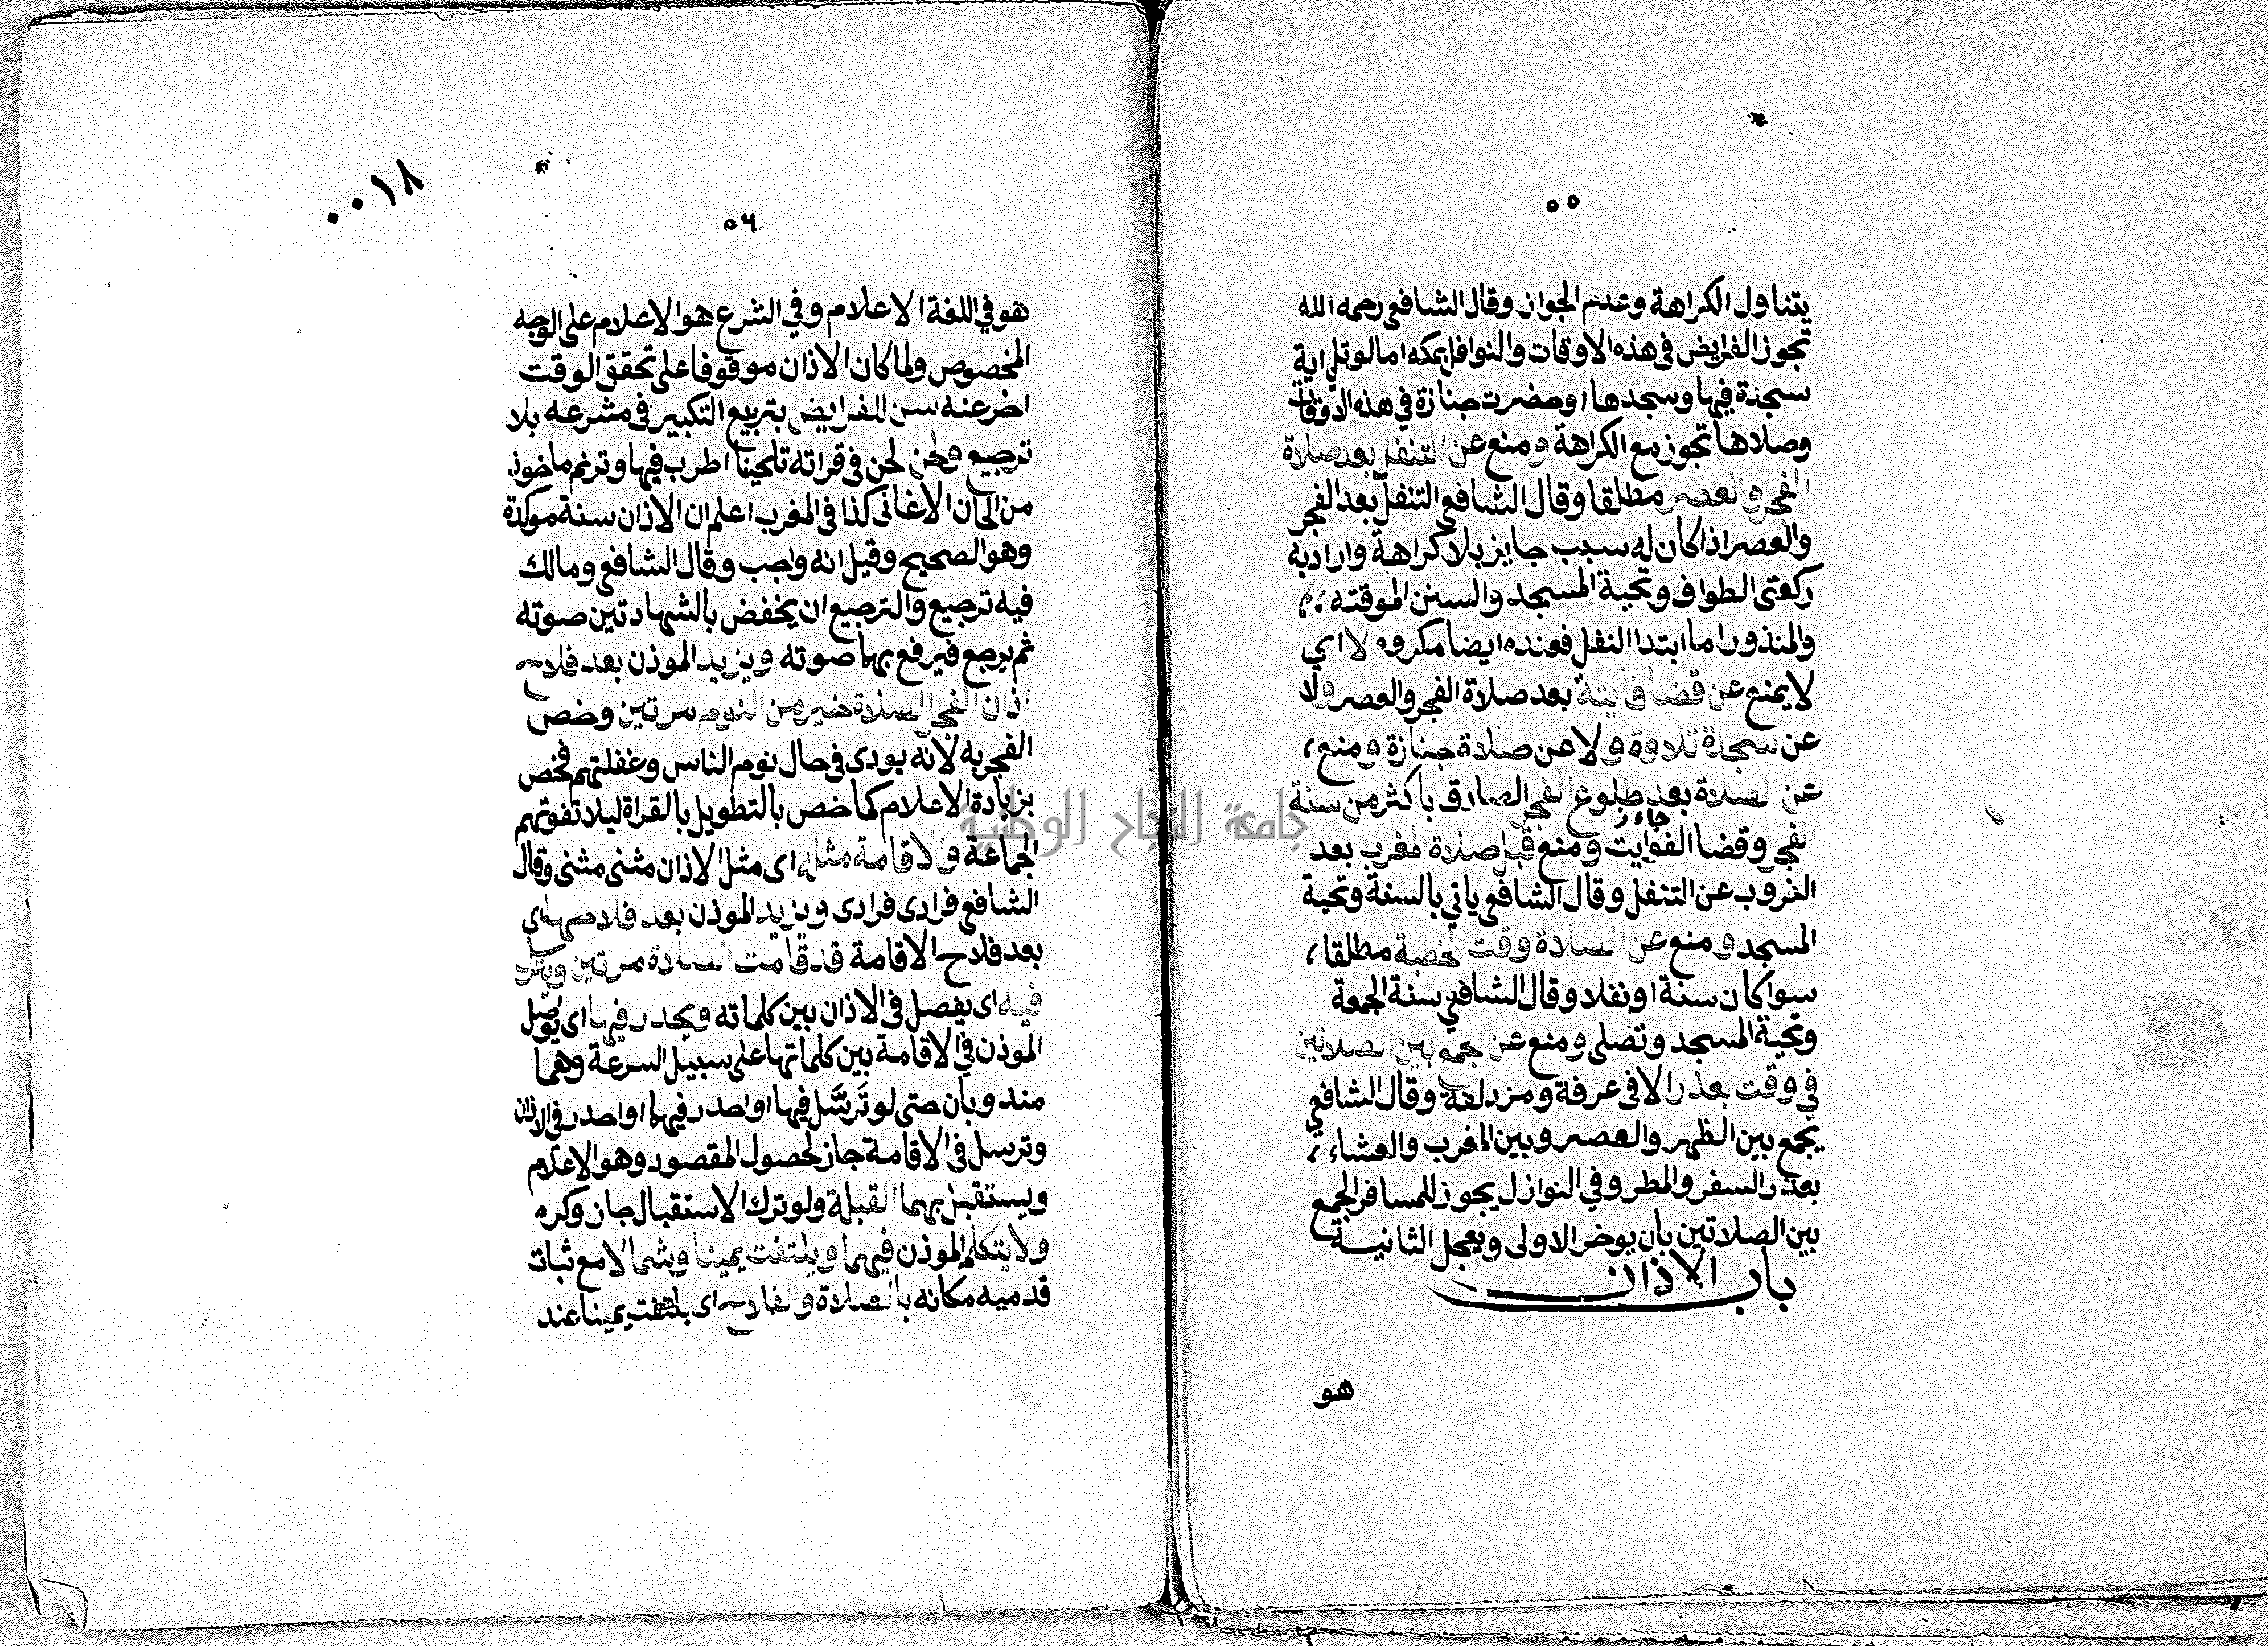 ٥٥
يتناول الكراهة وعدم الجواز وقال الشافعي رحمه الله
تجوز الفرايض في هذه الاوقات والنوافل بمكه اما لو تلى اية
سجدة فيها وسجدها او حضرت جنازة في هذه الاوقات
وصلاها تجوز مع الكراهة ومنع عن التنفل بعد صلاة
الفجر والعصر مطلقا وقال الشافعي التنفل بعد الفجر
والعصر اذا كان له سبب جايز بلا كراهة واراد به
ركعتي الطواف وتحية المسجد والسنن الموقته
والمنذور اما ابتدا النفل فعنده ايضا مكروه لا اي
لا يمنع عن قضا فايتة بعد صلاة الفجر والعصر ولا
عن سجدة تلاوة ولا عن صلاة جنازة ومنع
عن الصلاة بعد طلوع الفجر الصادق باكثر من سنة
الفجر وقضا الفوايت جاءز ومنع قبل صلاة المغرب بعد
الغروب عن التنفل وقال الشافعي ياتي بالسنة وتحية
المسجد ومنع عن الصلاة وقت الخطبة مطلقا
سوا كان سنة او نفلا وقال الشافعي سنة الجمعة
وتحية المسجد وتصلى ومنع عن الجمع بين الصلاتين
في وقت بعذر الا في عرفة ومزدلفة وقال الشافعي
يجمع بين الظهر والعصر وبين المغرب والعشاء
بعذر السفر والمطر وفي النوازل يجوز للمسافر الجمع
بين الصلاتين بان يوخر الاولى ويعجل الثانية
باب الاذان
هو
٠٠١٨
٥٦
هو في اللغة الاعلام وفي الشرع هو الاعلام على الوجه
المخصوص ولما كان الاذان موقوفا على تحقق الوقت
اخر عنه سن للفرايض بتربيع التكبير في مشرعه بلا
ترجيع ولحن لحن في قراته تلحينا اطرب فيها وترنم ماخوذ
من الحان الاغاني كذا في المغرب اعلم ان الاذان سنة موكدة
وهو الصحيح وقيل انه واجب وقال الشافعي ومالك
فيه ترجيع والترجيع ان يخفض بالشهادتين صوته
ثم يرجع فيرفع بهما صوته ويزيد الموذن بعد فلاح
اذان الفجر الصلاة خير من النوم مرتين وخص
الفجر به لانه يودى في حال نوم الناس وغفلتهم فخص
بزيادة الاعلام كما خص بالتطويل بالقراة ليلا تفوتهم
الجماعة والاقامة مثله اى مثل الاذان مثنى مثنى وقال
الشافعي فرادى فرادى ويزيد الموذن بعد فلاحها اى
بعد فلاح الاقامة قد قامت الصلاة مرتين ويترسل
فيه اى يفصل في الاذان بين كلماته ويحدر فيها اى يوصل
الموذن في الاقامة بين كلماتها على سبيل السرعة وهما
مندوبان حتى لو تَرَسَّل فيها او احدر فيهما او احدر في الاذان
وترسل في الاقامة جاز لحصول المقصود وهو الاعلام
ويستقبل بهما القبلة ولو ترك الاستقبال جاز وكره
ولا يتكلم الموذن فيهما ويلتفت يمينا وشمالا مع ثبات
قدميه مكانه بالصلاة والفلاح اى يلتفت يمينا عند
جامعة النجاح الوطنية